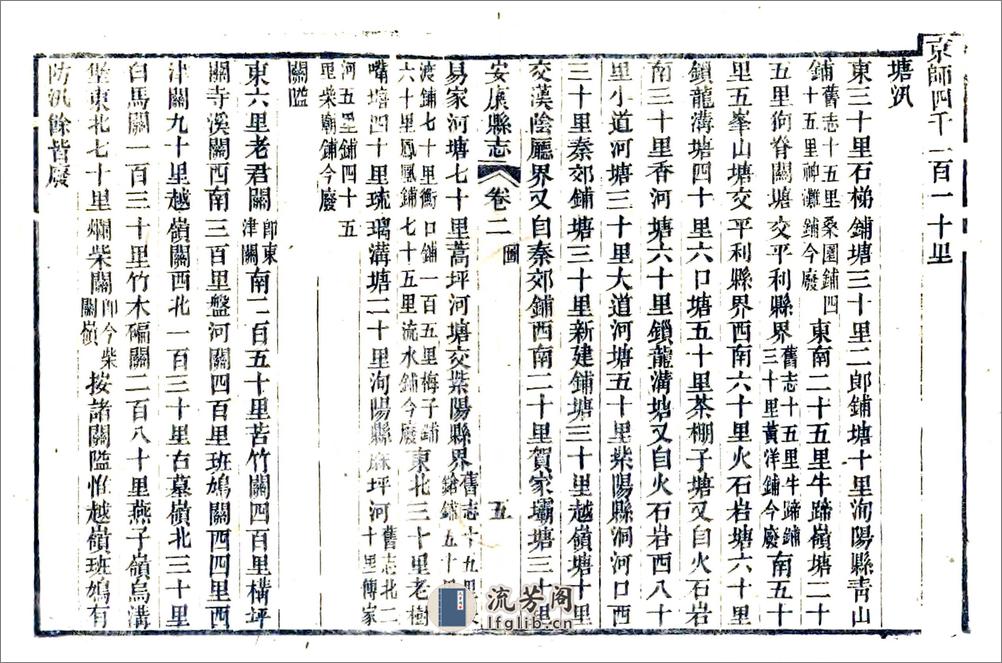 京師四千一百一十里
塘汛
東三十里石梯鋪塘三十里二郎鋪塘十里洵陽縣青山
鋪舊志十五里桑園鋪四十五里神灘鋪今廢東南二十五里牛蹄嶺塘二十
五里狗脊關塘交平利縣界舊志十五里牛蹄鋪三十里黃洋鋪今廢南五十
里五峯山塘交平利縣界西南六十里火石岩塘六十里
鎖龍溝塘四十里六口塘五十里茶棚子塘又自火石岩
南三十里香河塘六十里鎖龍溝塘又自火石岩西八十
里小道河塘三十里大道河塘五十里紫陽縣洞河口西
三十里秦郊鋪塘三十里新建鋪塘三十里越嶺塘十里
交漢陰廳界又自秦郊鋪西南二十里賀家壩塘三十里
安康縣志 卷二 圖 五
易家河塘七十里蒿坪河塘交紫陽縣界舊志十九里
渡鋪七十里衡口鋪一百五里梅子鋪六十里鳳凰鋪七十五里流水鋪今廢東北三十里老樹
嘴塘四十里琉璃溝塘二十里洵陽縣麻坪河舊志北二十里傅家
河五里鋪四十五里柴廟鋪今廢
關隘
東六里老君關即東津關南一百五十里苦竹關四百里橫坪
關寺溪關西南三百里盤河關四百里班鳩關西四里西
津關九十里越嶺關西北一百三十里右墓嶺北三十里
白馬關一百三十里竹木碥關二百八十里燕子嶺烏溝
堡東北七十里爛柴關即今柴關嶺按諸關隘惟越嶺班鳩有
防汛餘皆廢
流芳阁
lfglib.cn